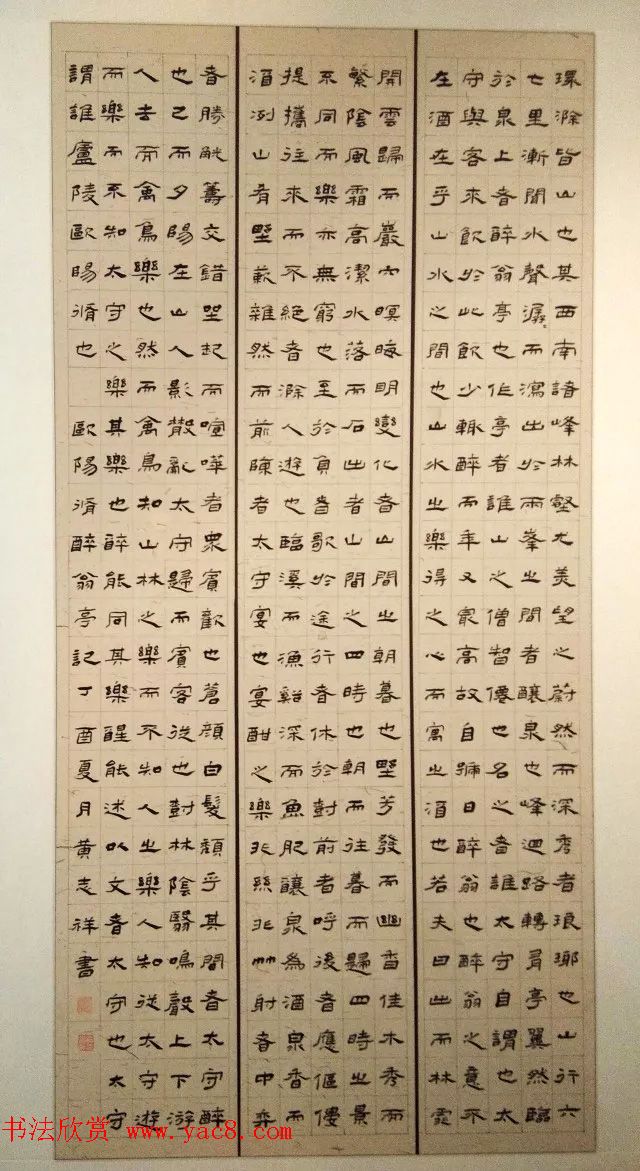 環滁皆山也其西南諸峰林壑尤美望之蔚然而深秀者琅琊也山行六
七里漸聞水聲潺〻而瀉出於兩峯之間者釀泉也峰迴路轉有亭翼然臨
於泉上者醉翁亭也作亭者誰山之僧智僊也名之者誰太守自謂也太
守與客來飲於此飲少輒醉而年又最高故自號曰醉翁也醉翁之意不
在酒在乎山水之間也山水之樂得之心而寓之酒也若夫日出而林霏
開雲歸而巖穴暝晦明變化者山間之朝暮也野芳發而幽香佳木秀而
繁陰風霜高潔水落而石出者山間之四時也朝而往暮而歸四時之景
不同而樂亦無窮也至於負者歌於途行者休於樹前者呼後者應傴僂
提攜往來而不絕者滁人遊也臨溪而漁谿深而魚肥釀泉為酒泉香而
酒洌山肴野蔌雜然而前陳者太守宴也宴酣之樂非絲非竹射者中弈
者勝觥籌交錯坐起而喧嘩者眾賓歡也蒼顏白髮頹乎其間者太守醉
也已而夕陽在山人影散亂太守歸而賓客從也樹林陰翳鳴聲上下游
人去而禽鳥樂也然而禽鳥知山林之樂而不知人之樂人知從太守遊
而樂而不知太守之樂其樂也醉能同其樂醒能述以文者太守也太守
謂誰廬陵歐陽脩也 歐陽脩醉翁亭記丁酉夏月黃志祥書
书法欣赏 www.yac8.com